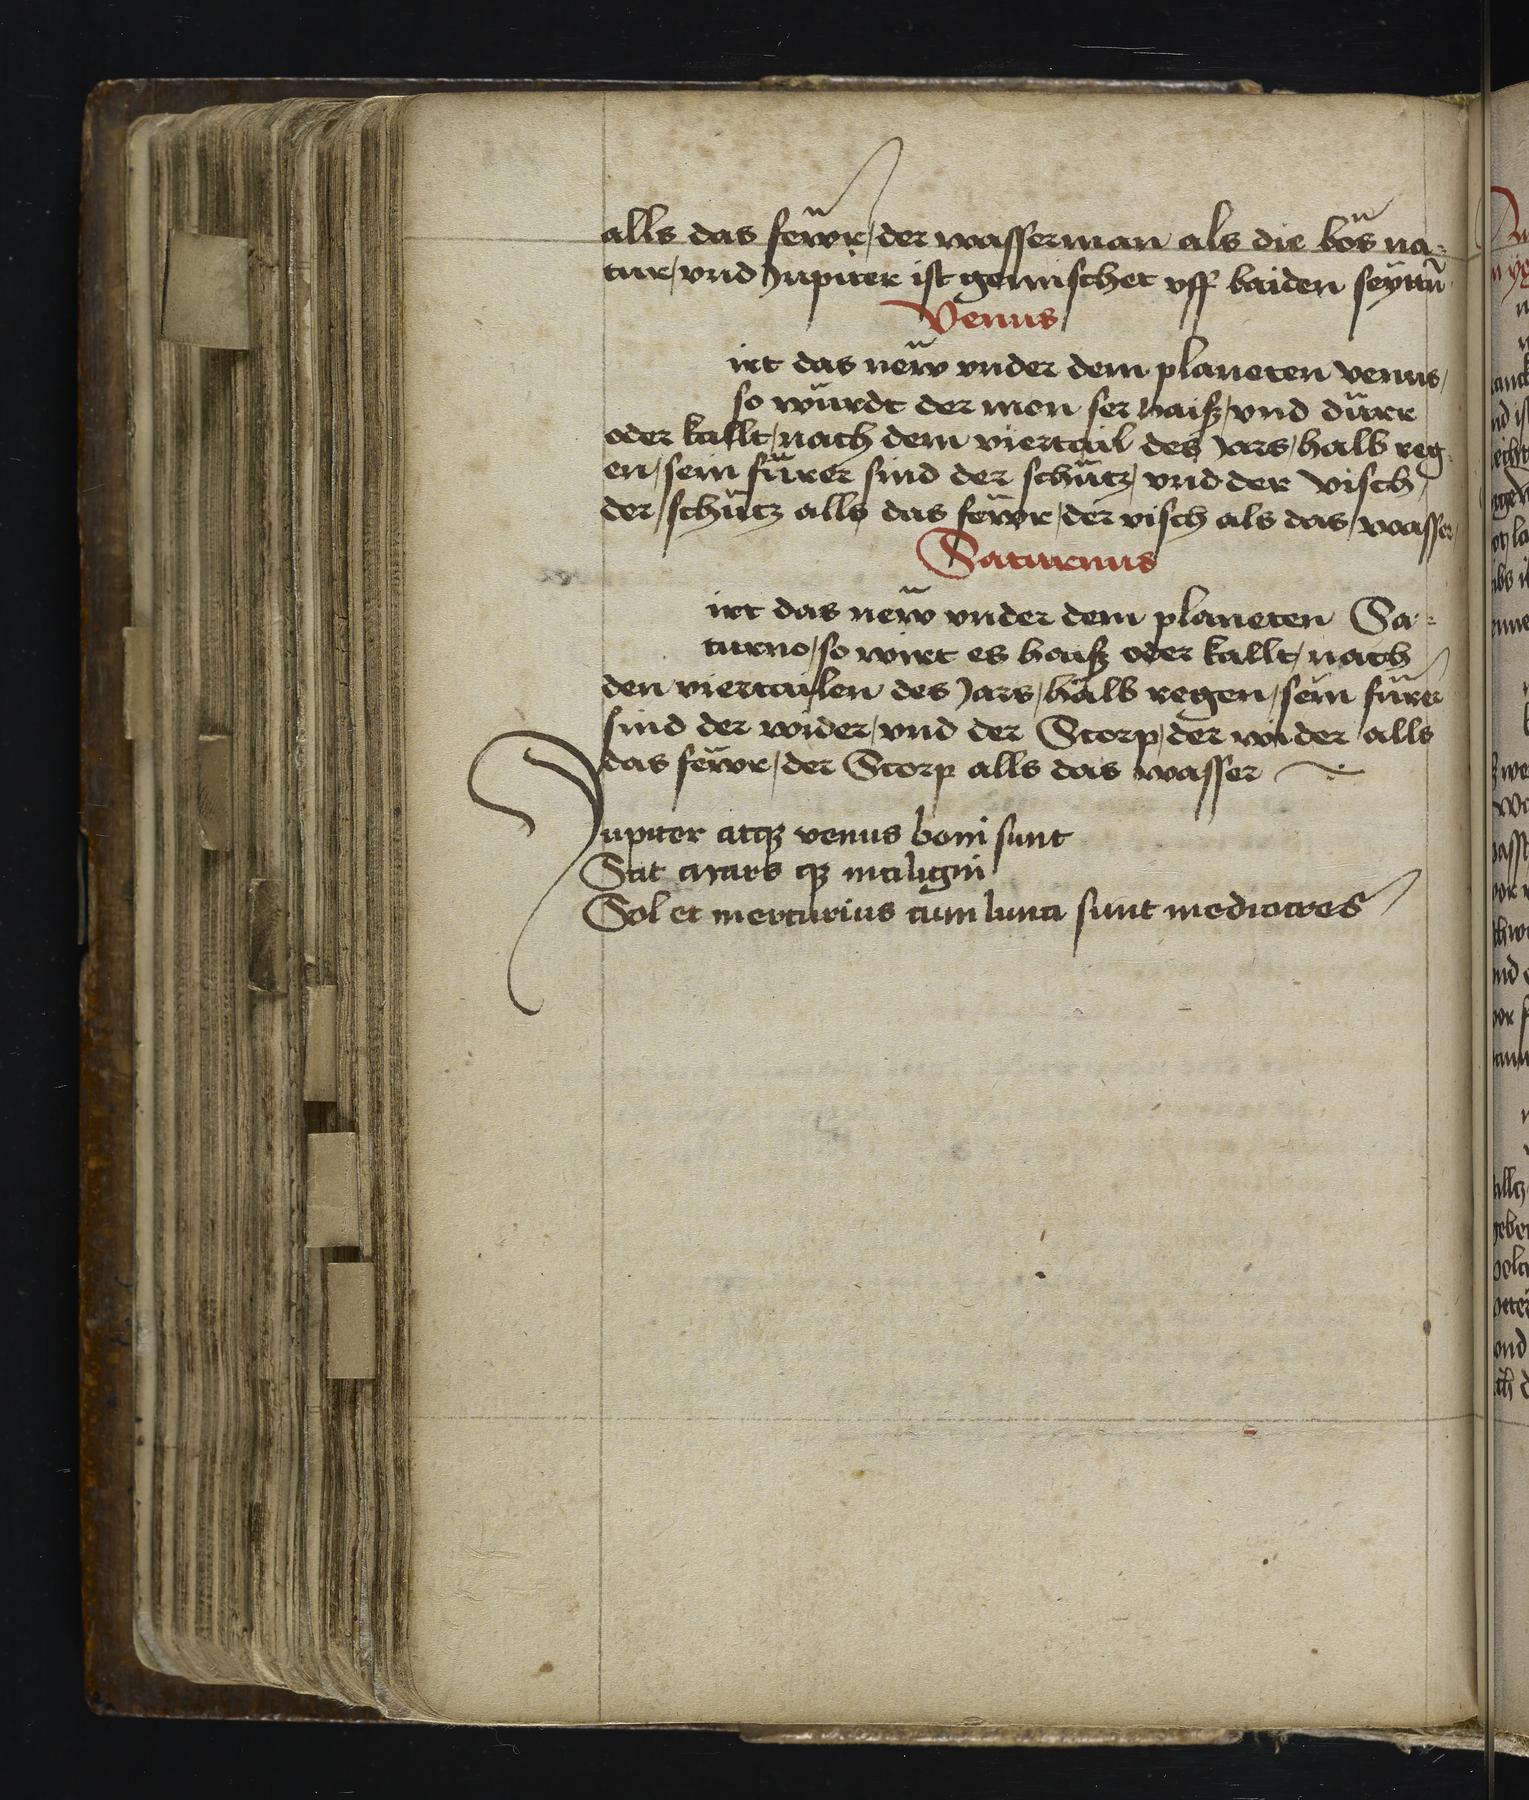 alls das feẅr / der wasserman als die bös na-
tur / vnd Jupiter ist gemischet vff baiden seyttn̄
Venus
irt das neẅ vnder dem planeten venus /
so würdt der mon ser haiß / vnd dürr
oder kallt / nach dem viertail des Jars / halb reg-
en / sein fürer sind der schütz / vnd der visch /
der / schütz alls das feẅr / der visch als das / wasser
Saturnus
irt das neẅ vnder dem planeten Sa-
turno / so wirt es haiß oder kallt / nach
den viertailen des Jars / halb regen / sein fürer
sind der wider / vnd der Scorp / der wider / alls
das feẅr / der Scorp alls das wasser
Jupiter atqꝫ venus boni sunt
Sat mars qꝫ maligni
Sol et mercurius cum luna sunt mediocres